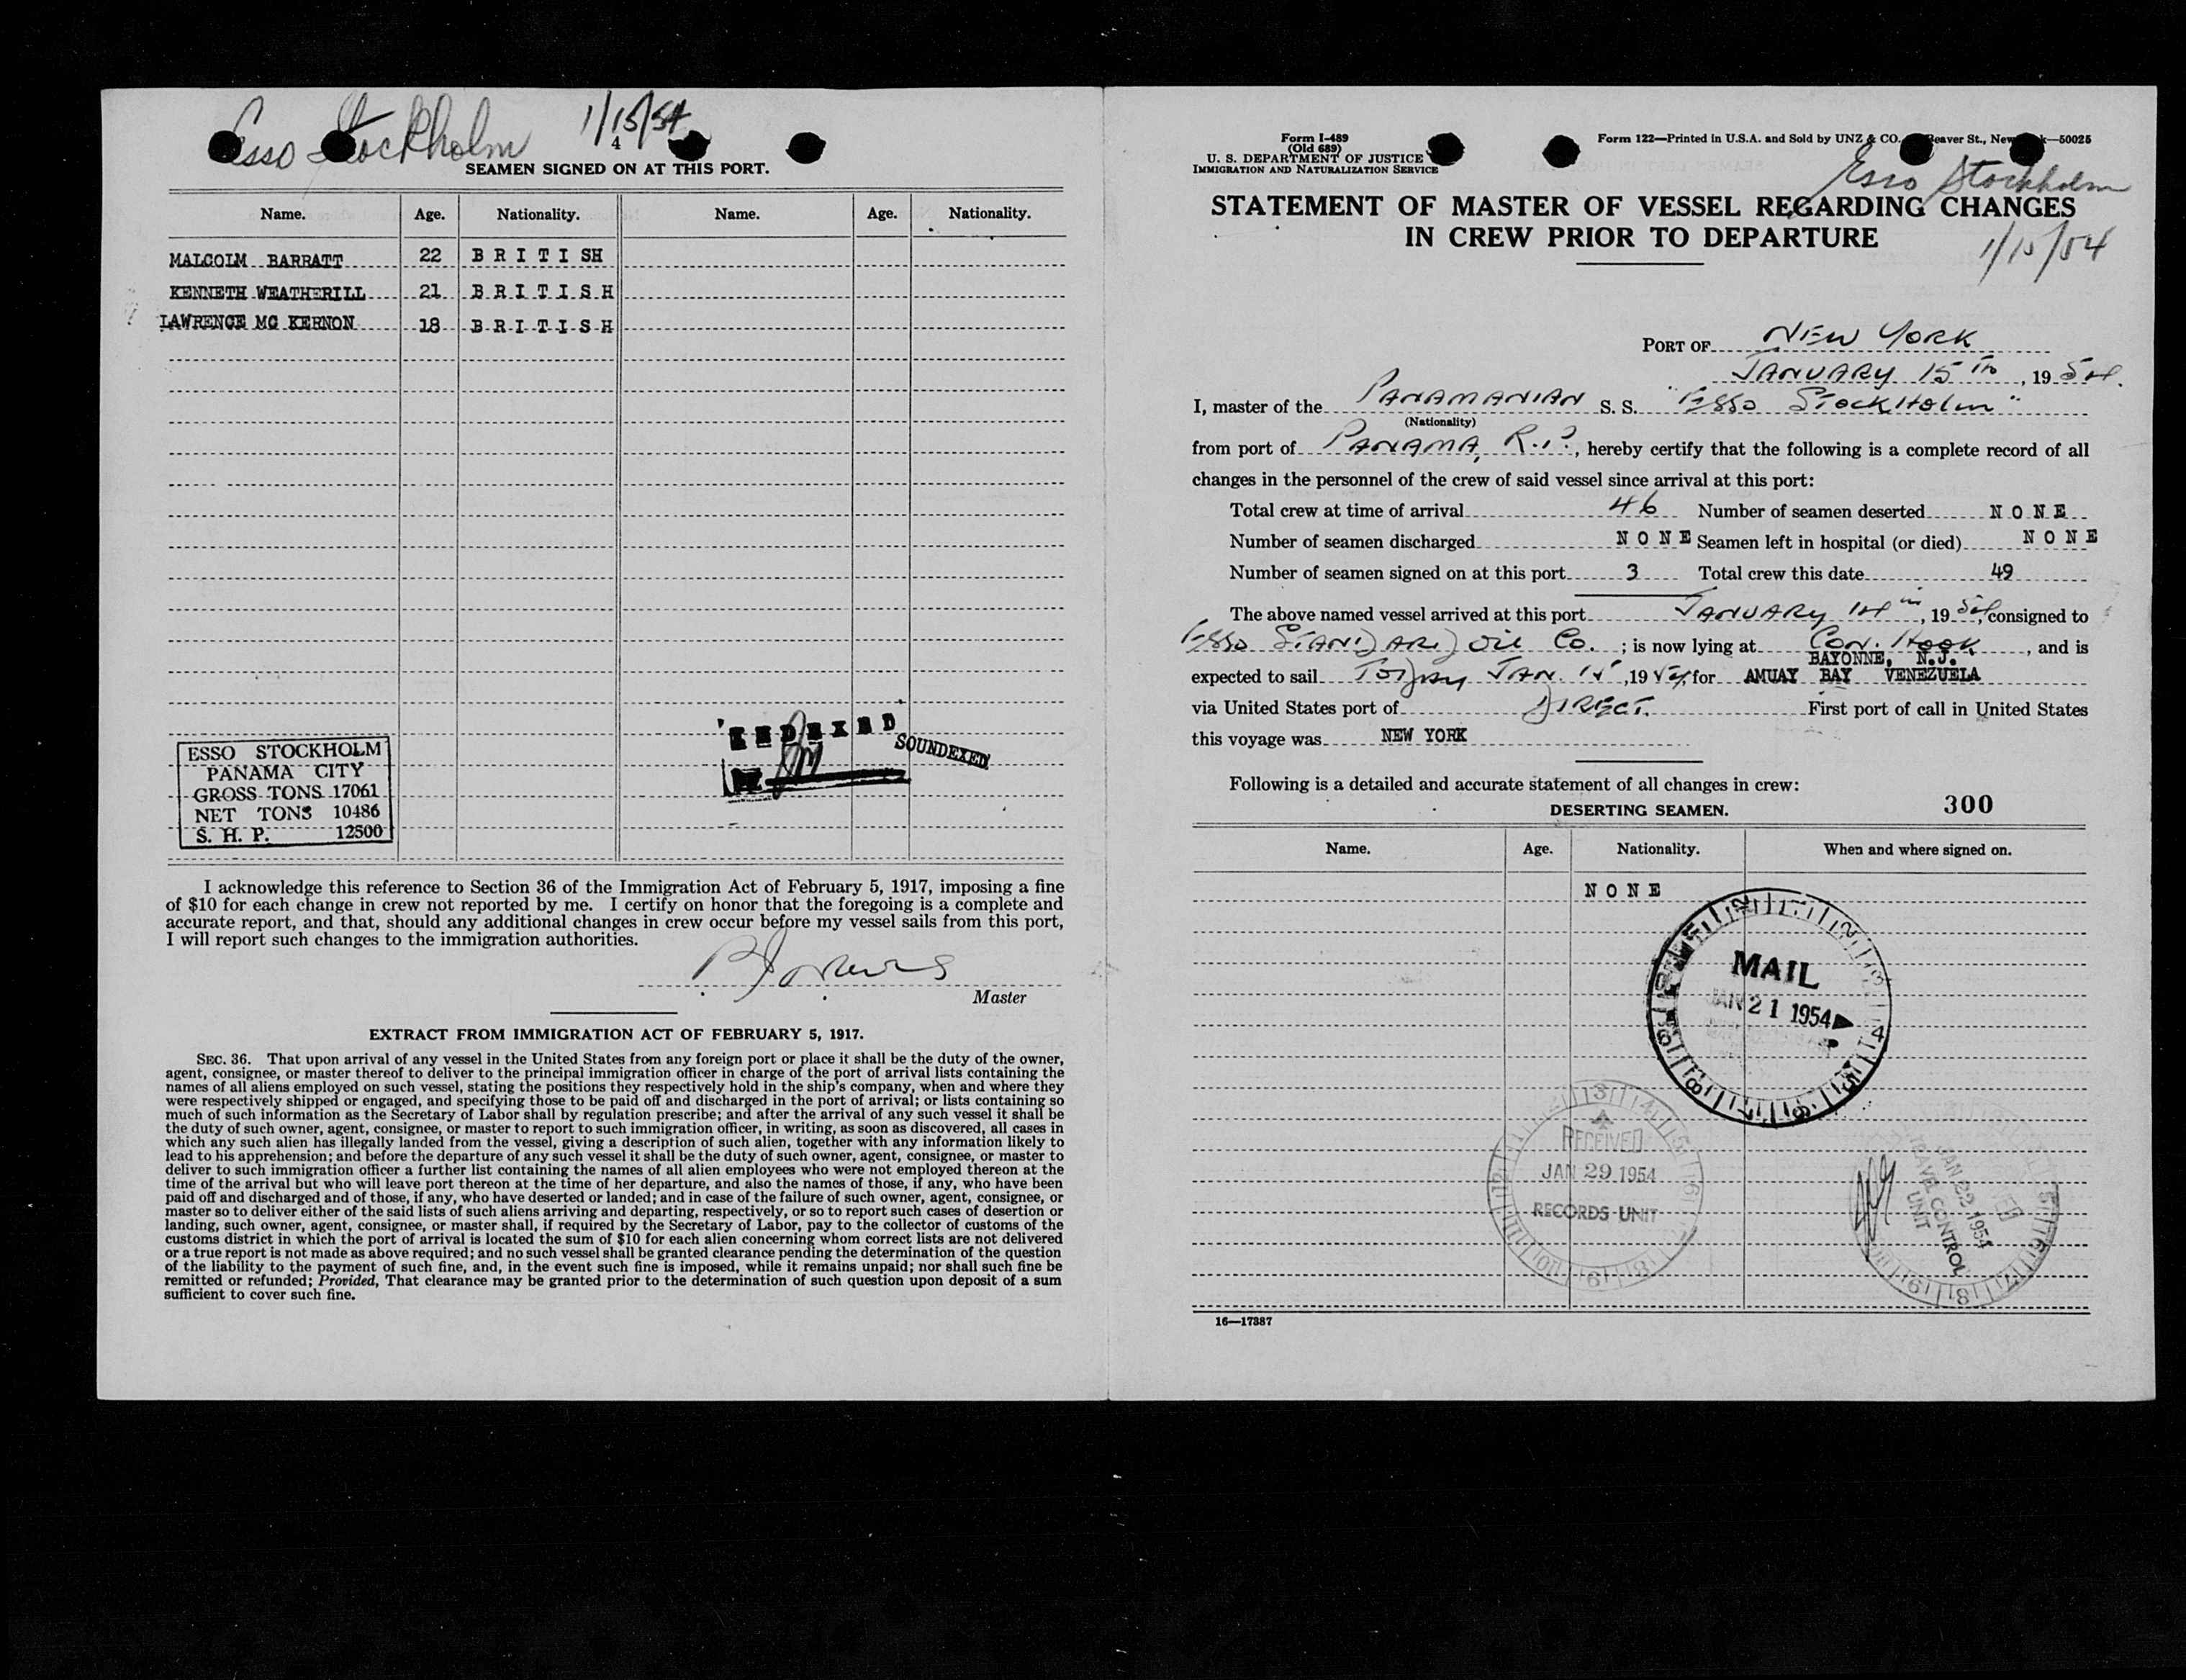 Esso Stockholm 1/15/54
4
SEAMEN SIGNED ON AT THIS PORT.
Name. Age. Nationality. Name. Age. Nationality.
MALCOLM BARRATT 22 B R I T I SH
KENNETH WEATHERILL 21 B R I T I S H
LAWRENCE MC KERNON 18 B R I T I S H
INDEXED
SOUNDEXED
ESSO STOCKHOLM
PANAMA CITY
GROSS TONS 17061
NET TONS 10486
S. H. P. 12500
I acknowledge this reference to Section 36 of the Immigration Act of February 5, 1917, imposing a fine
of $10 for each change in crew not reported by me. I certify on honor that the foregoing is a complete and
accurate report, and that, should any additional changes in crew occur before my vessel sails from this port,
I will report such changes to the immigration authorities.
Master
EXTRACT FROM IMMIGRATION ACT OF FEBRUARY 5, 1917.
SEC. 36. That upon arrival of any vessel in the United States from any foreign port or place it shall be the duty of the owner,
agent, consignee, or master thereof to deliver to the principal immigration officer in charge of the port of arrival lists containing the
names of all aliens employed on such vessel, stating the positions they respectively hold in the ship's company, when and where they
were respectively shipped or engaged, and specifying those to be paid off and discharged in the port of arrival; or lists containing so
much of such information as the Secretary of Labor shall by regulation prescribe; and after the arrival of any such vessel it shall be
the duty of such owner, agent, consignee, or master to report to such immigration officer, in writing, as soon as discovered, all cases in
which any such alien has illegally landed from the vessel, giving a description of such alien, together with any information likely to
lead to his apprehension; and before the departure of any such vessel it shall be the duty of such owner, agent, consignee, or master to
deliver to such immigration officer a further list containing the names of all alien employees who were not employed thereon at the
time of the arrival but who will leave port thereon at the time of her departure, and also the names of those, if any, who have been
paid off and discharged and of those, if any, who have deserted or landed; and in case of the failure of such owner, agent, consignee, or
master so to deliver either of the said lists of such aliens arriving and departing, respectively, or so to report such cases of desertion or
landing, such owner, agent, consignee, or master shall, if required by the Secretary of Labor, pay to the collector of customs of the
customs district in which the port of arrival is located the sum of $10 for each alien concerning whom correct lists are not delivered
or a true report is not made as above required; and no such vessel shall be granted clearance pending the determination of the question
of the liability to the payment of such fine, and, in the event such fine is imposed, while it remains unpaid; nor shall such fine be
remitted or refunded; Provided, That clearance may be granted prior to the determination of such question upon deposit of a sum
sufficient to cover such fine.
Form I-489
(Old 689)
U. S. DEPARTMENT OF JUSTICE
IMMIGRATION AND NATURALIZATION SERVICE
Form 122—Printed in U.S.A. and Sold by UNZ & CO. Beaver St., New —50025
Esso Stockholm
STATEMENT OF MASTER OF VESSEL REGARDING CHANGES
IN CREW PRIOR TO DEPARTURE
1/15/54
PORT OF NEW YORK
JANUARY 15th, 1954.
I, master of the PANAMANIAN S. S. "Esso Stockholm"
(Nationality)
from port of PANAMA, R.P., hereby certify that the following is a complete record of all
changes in the personnel of the crew of said vessel since arrival at this port:
Total crew at time of arrival 46 Number of seamen deserted N O N E
Number of seamen discharged N O N E Seamen left in hospital (or died) N O N E
Number of seamen signed on at this port 3 Total crew this date 49
The above named vessel arrived at this port JANUARY 14th, 1954, consigned to
Esso STANDARD Oil Co.; is now lying at Con. Hook, and is
BAYONNE, N.J.
expected to sail TODAY JAN. 15, 1954, for AMUAY BAY VENEZUELA
via United States port of DIRECT. First port of call in United States
this voyage was NEW YORK
Following is a detailed and accurate statement of all changes in crew:
DESERTING SEAMEN. 300
Name. Age. Nationality. When and where signed on.
N O N E
MAIL
JAN 21 1954
RECEIVED
JAN 29 1954
RECORDS UNIT
JAN 22 1954
TRAVEL CONTROL
UNIT
16—17387